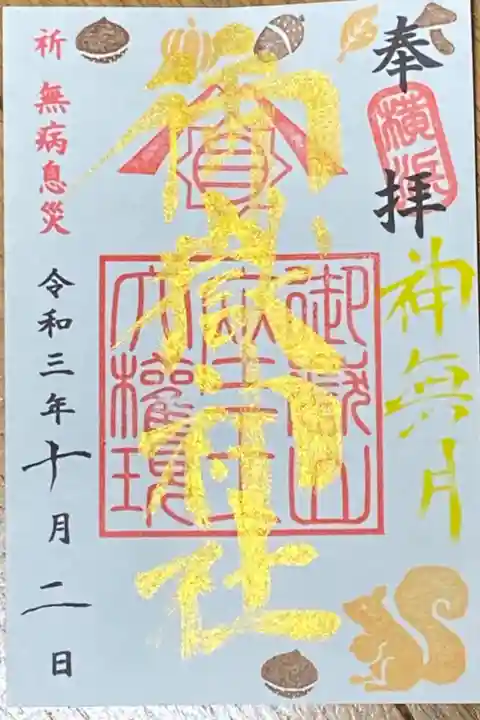 奉拝
横浜
神無月
御嶽神社
御嶽山
蔵王
大権現
祈 無病息災
令和三年十月二日